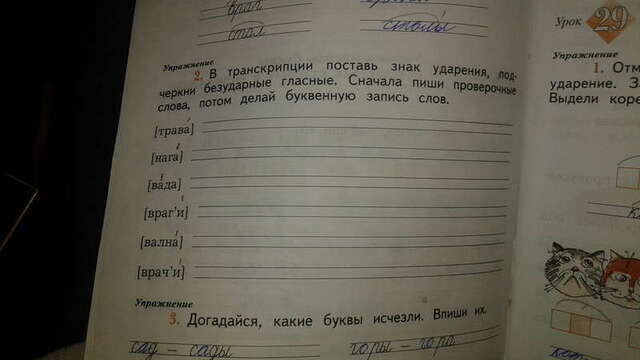 врач
стол столы
Урок 29
Упражнение
2. В транскрипции поставь знак ударения, под-
черкни безударные гласные. Сначала пиши проверочные
слова, потом делай буквенную запись слов.
[трава́]
[нага́]
[вада́]
[враг'и́]
[вална́]
[врач'и́]
Упражнение
3. Догадайся, какие буквы исчезли. Впиши их.
сад – сады горы – гора
Упражнение
1. Отм
ударение. З
Выдели кор